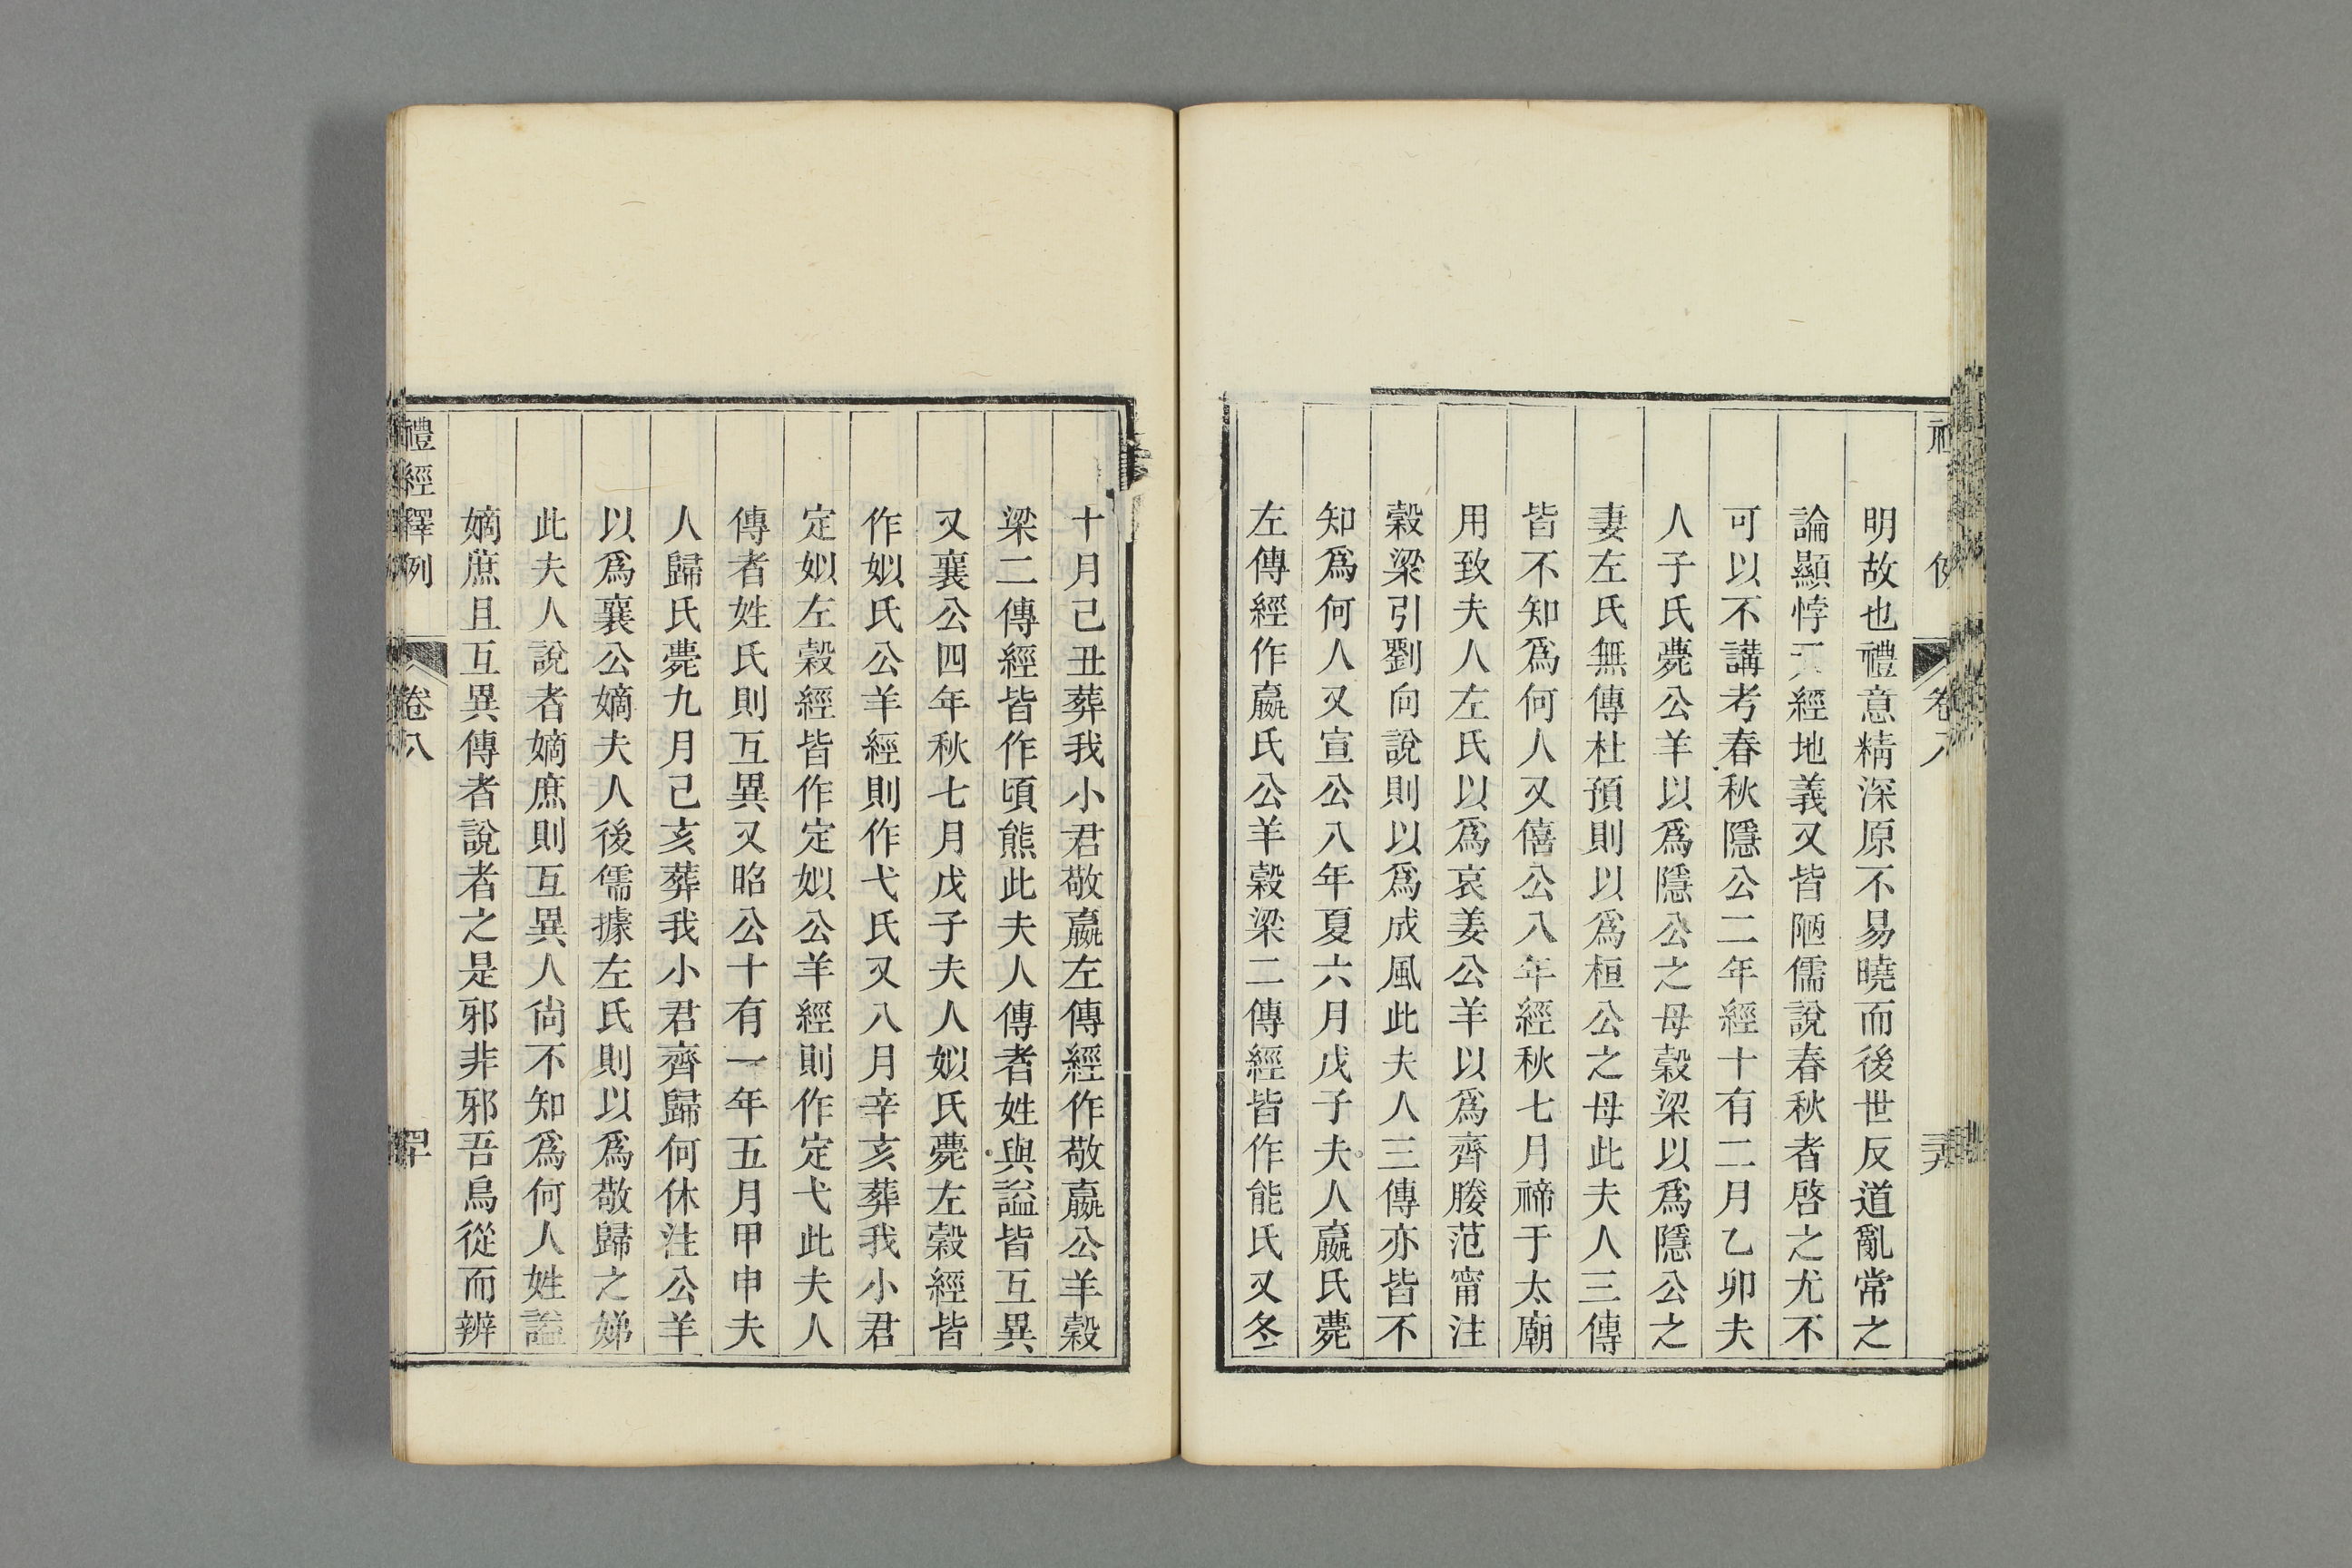 明故也禮意精深原不易曉而後世反道亂常之
論顯悖天經地義又皆陋儒說春秋者啓之尤不
可以不講考春秋隱公二年經十有二月乙卯夫
人子氏薨公羊以爲隱公之母穀梁以爲隱公之
妻左氏無傳杜預則以爲桓公之母此夫人三傳
皆不知爲何人又僖公八年經秋七月禘于太廟
用致夫人左氏以爲哀姜公羊以爲齊媵范甯注
穀梁引劉向說則以爲成風此夫人三傳亦皆不
知爲何人又宣公八年夏六月戊子夫人嬴氏薨
左傳經作嬴氏公羊穀梁二傳經皆作熊氏又冬
十月己丑葬我小君敬嬴左傳經作敬嬴公羊穀
梁二傳經皆作頃熊此夫人傳者姓與謚皆互異
又襄公四年秋七月戊子夫人姒氏薨左穀經皆
作姒氏公羊經則作弋氏又八月辛亥葬我小君
定姒左穀經皆作定姒公羊經則作定弋此夫人
傳者姓氏則互異又昭公十有一年五月甲申夫
人歸氏薨九月己亥葬我小君齊歸何休注公羊
以爲襄公嫡夫人後儒據左氏則以爲敬歸之娣
此夫人說者嫡庶則互異人尙不知爲何人姓謚
嫡庶且互異傳者說者之是邪非邪吾烏從而辨
禮經釋例 卷八